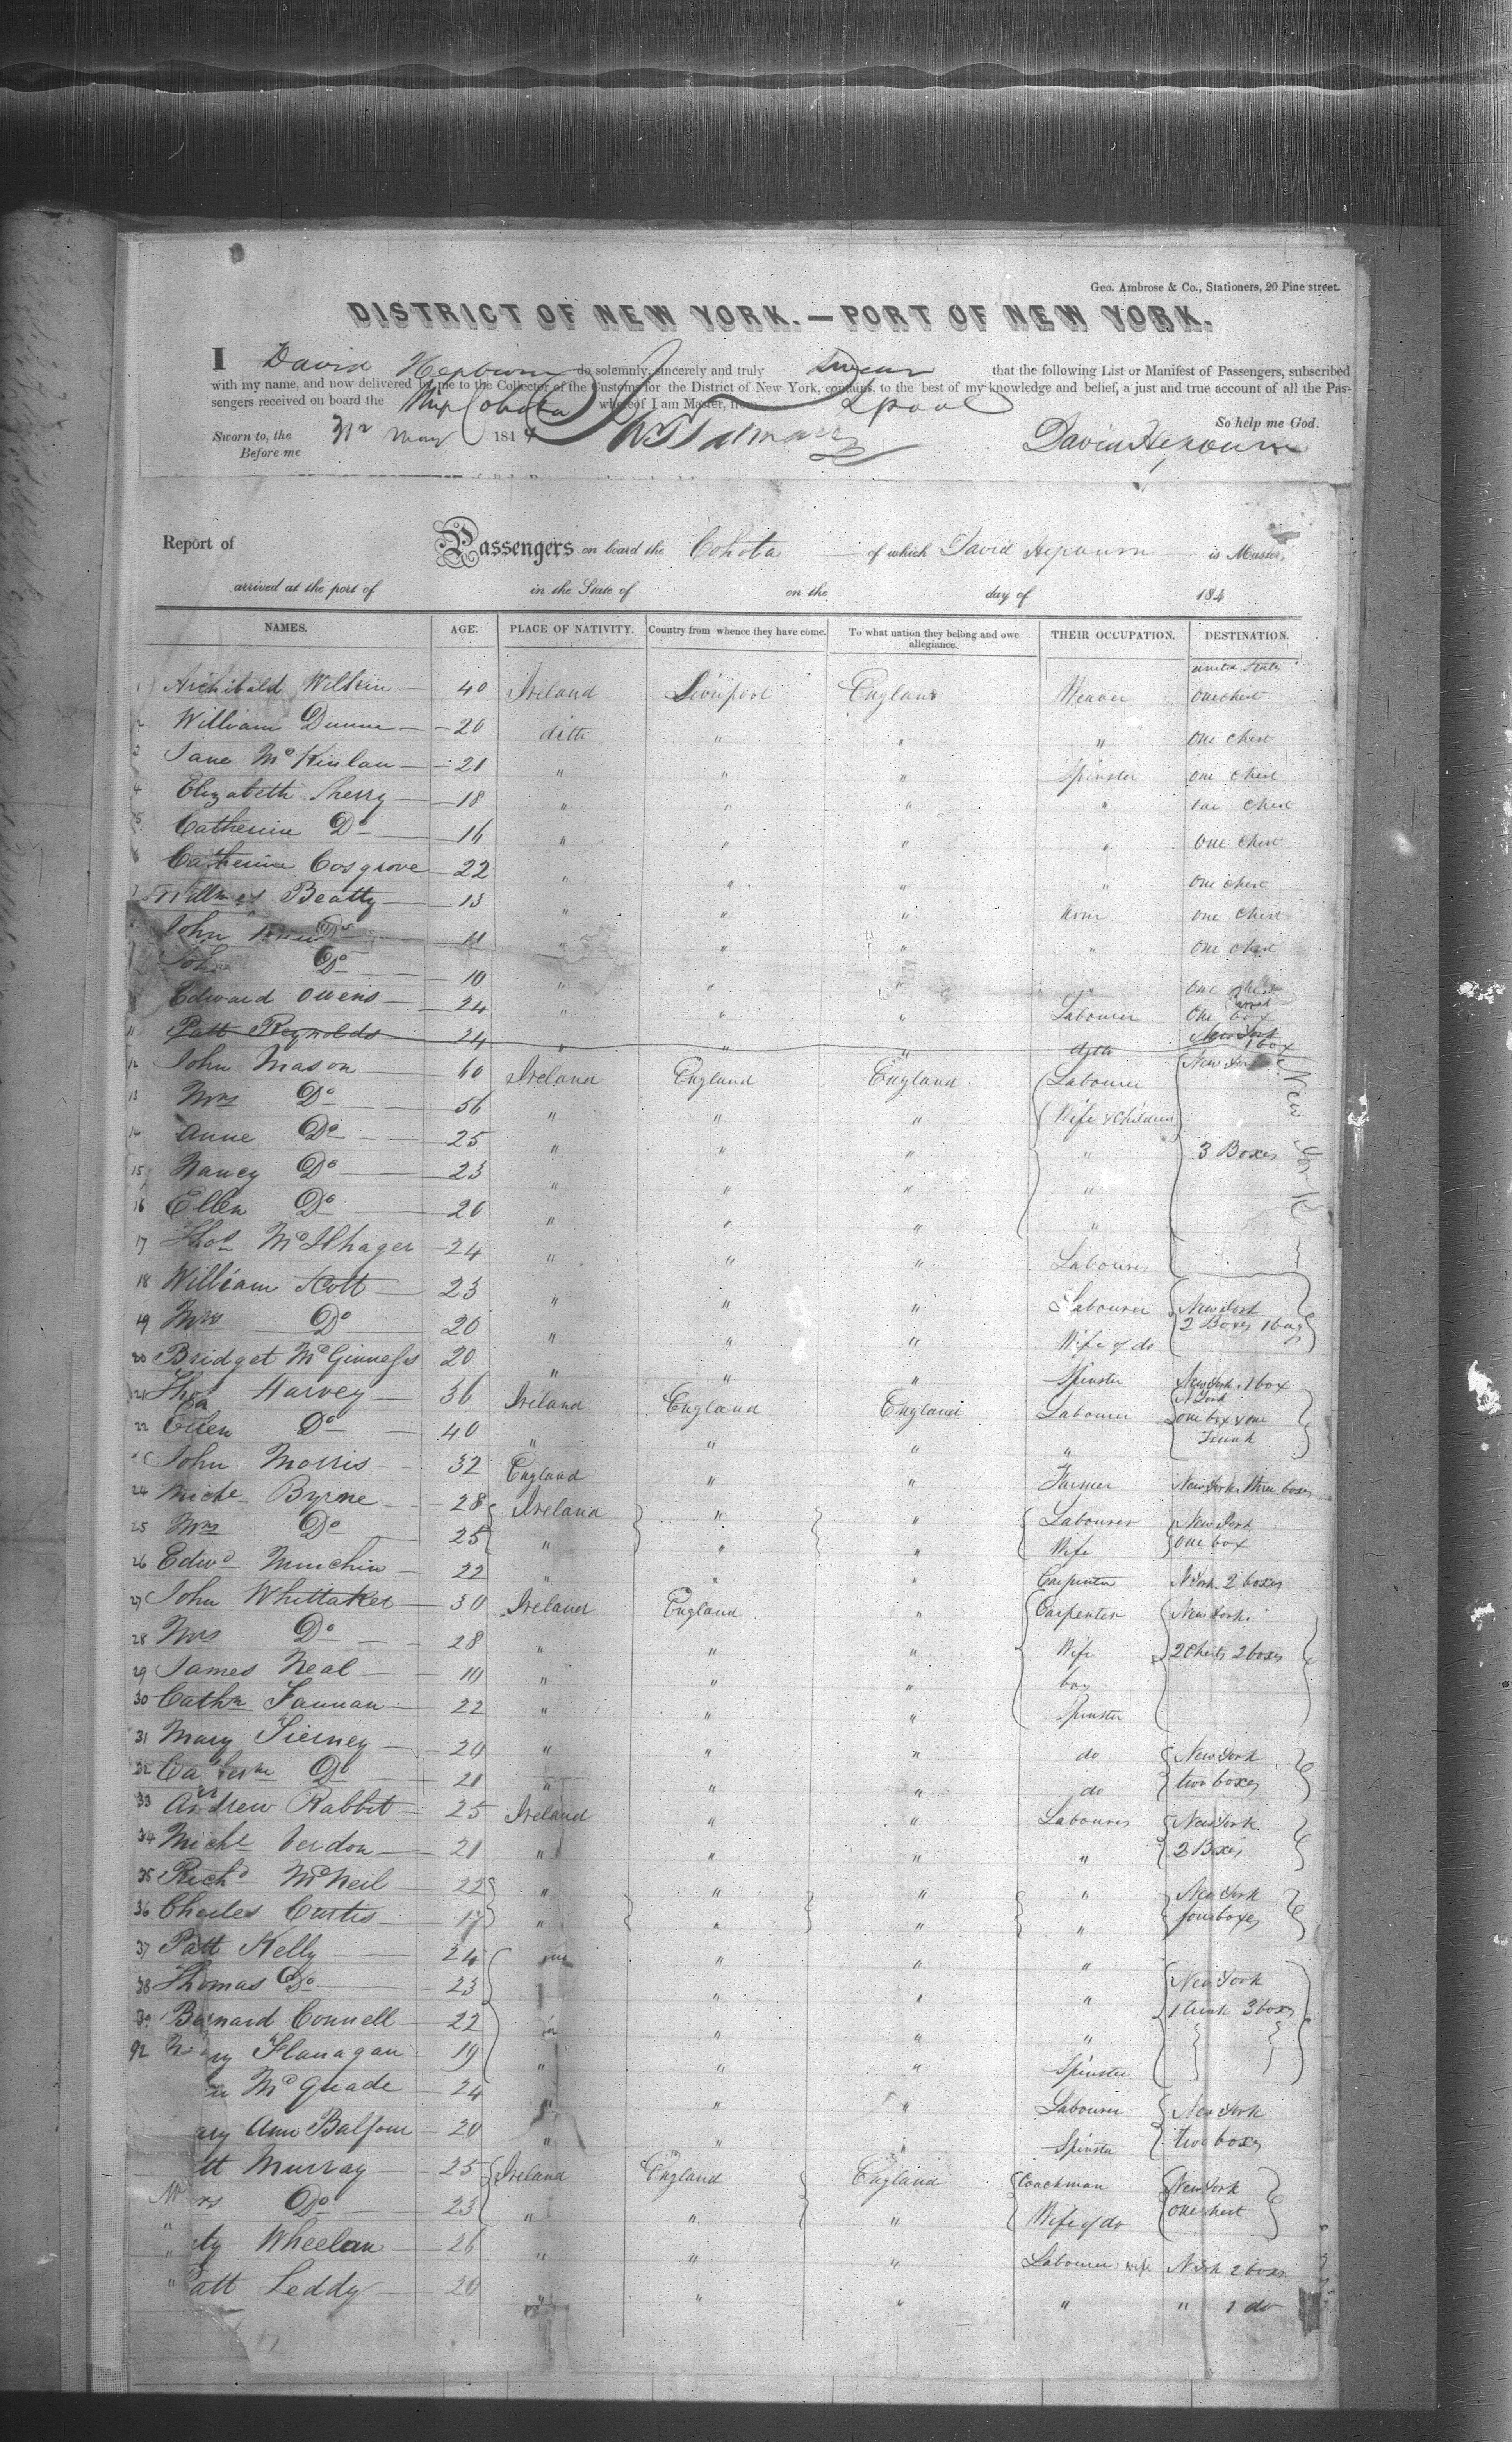 Geo. Ambrose & Co., Stationers, 20 Pine street.
DISTRICT OF NEW YORK.—PORT OF NEW YORK.
I David Hepburn do solemnly, sincerely and truly swear that the following List or Manifest of Passengers, subscribed
with my name, and now delivered by me to the Collector of the Customs for the District of New York, contains, to the best of my knowledge and belief, a just and true account of all the Pas-
sengers received on board the Ship Cohota whereof I am Master, from Lpool
Sworn to, the May 184 So help me God.
Before me David Hepburn
Report of Passengers on board the Cohota of which David Hepburn is Master,
arrived at the port of in the State of on the day of 184
NAMES. AGE. PLACE OF NATIVITY. Country from whence they have come. To what nation they belong and owe allegiance. THEIR OCCUPATION. DESTINATION.
United States
1 Archibald Wilkin 40 Ireland Liverpool England Weaver One chest
2 William Dunne 20 ditto " " " One chest
3 Jane McKinlau 21 " " " Spinster One chest
4 Elizabeth Sherry 18 " " " " One chest
5 Catherine Do 16 " " " " One chest
6 Catherine Cosgrove 22 " " " " One chest
7 Beatty 13 " " " None One chest
John Do 11 " " " " One chest
Do 10 " " " " One
Edward Owens 24 " " " Labourer One box
11 Patt Reynolds 24 " " " ditto New York 1 box
12 John Mason 60 Ireland England England Labourer New York
13 Mrs Do 56 " " " Wife & Children
14 Anne Do 25 " " " " 3 Boxes New York
15 Nancy Do 23 " " " "
16 Ellen Do 20 " " " "
17 Thos McIlhager 24 " " " Labourer
18 William Scott 23 " " " Labourer New York
19 Mrs Do 20 " " " Wife of do 2 Boxes 1 bag
20 Bridget McGinness 20 " " " Spinster New York 1 box
21 Thos Harvey 36 Ireland England England Labourer N York
22 Ellen Do 40 " " " " one box & one Trunk
John Morris 32 England " " Farmer New York three boxes
24 Michl Byrne 28 Ireland " " Labourer New York
25 Mrs Do 25 " " " Wife one box
26 Edwd Minchin 22 " " " Carpenter N York 2 boxes
27 John Whittaker 30 Ireland England " Carpenter New York
28 Mrs Do 28 " " " Wife 2 Chests 2 boxes
29 James Neal 10 " " " boy
30 Cathn Fannan 22 " " " Spinster
31 Mary Tierney 20 " " " do New York
32 Catherine Do 21 " " " do two boxes
33 Andrew Rabbit 25 Ireland " " Labourer New York
34 Michl Verdon 21 " " " " 2 Boxes
35 Richd McNeil 22 " " " " New York
36 Charles Curtis 17 " " " " four boxes
37 Patt Kelly 24 " " " New York
38 Thomas Do 23 " " " 1 trunk 3 boxes
39 Barnard Connell 22 " " "
Flanagan 19 " " " Spinster
McQuade 24 " " " Labourer New York
ary Ann Balfour 20 " " " Spinster two boxes
tt Murray 25 Ireland England England Coachman New York
Mrs Do 23 " " " Wife of do one chest
" ty Wheelan 26 " " " Labourer wife N York 2 boxes
" Patt Leddy 20 " " " " " 1 do